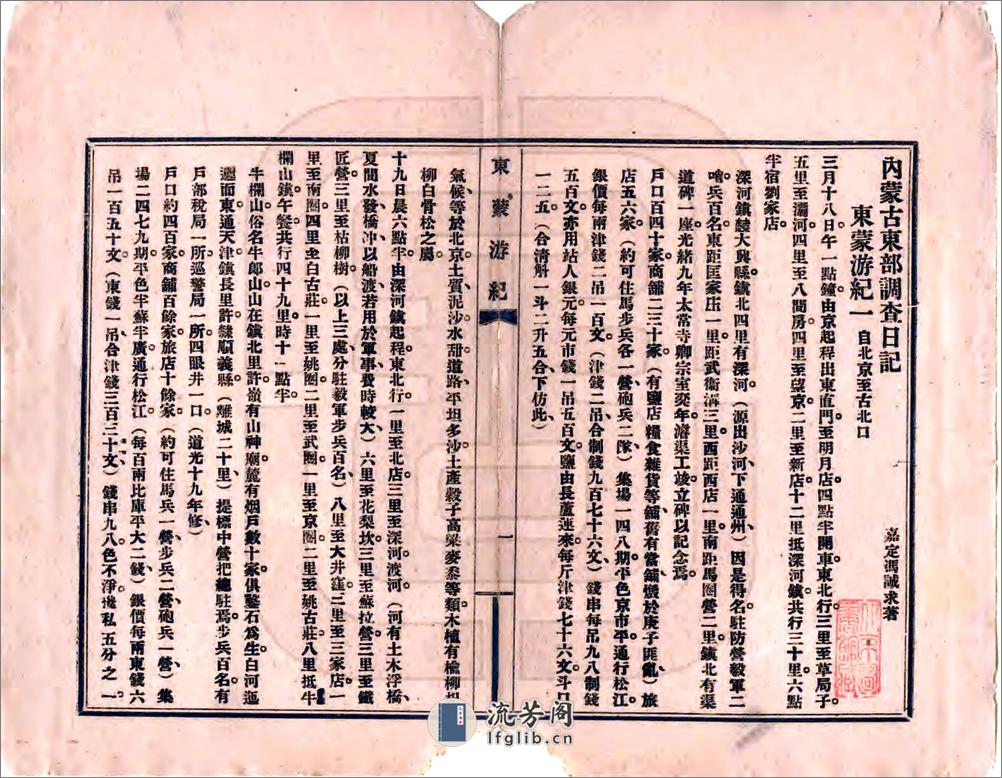 內蒙古東部調查日記
東蒙游紀一 自北京至古北口
嘉定馮誠求著
三月十八日午一點鐘由京起程出東直門至明月店四點半開車東北行三里至草局子
五里至灞河四里至八間房四里至望京二里至新店十二里抵深河鎮共行三十里六點
半宿劉家店
深河鎮隸大興縣鎮北四里有深河(源出沙河下通通州)因是得名駐防營毅軍二
哨兵百名東距匡家庄一里距武衛溝三里西距西店一里南距馬圈營二里鎮北有渠
道碑一座光緒九年太常寺卿宗室奕年濬渠工竣立碑以記念焉
戶口百四十家商舖二三十家(有鹽店糧食雜貨等舖舊有當舖燬於庚子匪亂)旅
店五六家(約可住馬步兵各一營砲兵二隊)集場一四八期平色京市平通行松江
銀價每兩津錢二吊一百文(津錢二吊合制錢九百七十六文)錢串每吊九八制錢
五百文亦用站人銀元每元市錢一吊五百文鹽由長蘆運來每斤津錢七十六文斗
一二五(合清斛一斗二升五合下仿此)
東蒙游紀
一
氣候等於北京土質泥沙水甜道路平坦多沙土產穀子高粱麥黍等類木植有楡柳
柳白骨松之屬
十九日晨六點半由深河鎮起程東北行一里至北店三里至深河渡河(河有土木浮橋
夏間水發橋沖以船渡若用於軍事費時較大)六里至花梨坎三里至蘇拉營三里至鐵
匠營三里至枯柳樹(以上三處分駐毅軍步兵百名)八里至大井窪三里至三家店一
里至南圈四里至白古莊一里至姚圈二里至武圈一里至京圈二里至姚古莊八里抵牛
欄山鎮午餐共行四十九里時十二點半
牛欄山俗名牛郎山山在鎮北里許嶺有山神廟麓有烟戶數十家俱鑿石爲生白河迤
邐而東通天津鎮長里許隸順義縣(離城二十里)提標中營把總駐焉步兵百名有
戶部稅局一所巡警局一所四眼井一口(道光十九年修)
戶口約四百家商舖百餘家旅店十餘家(約可住馬兵一營步兵二營砲兵一營)集
場二四七九期平色半蘇半廣通行松江(每百兩比庫平大二錢)銀價每兩東錢六
吊一百五十文(東錢一吊合津錢三百三十文)錢串九八色不淨攙私五分之一
流芳閣
lfglib.cn